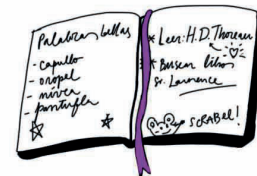 Palabras bellas
- capullo
- oropel
- níver
- pantufla
* Leer: H.D. Thoreau
* Buscar libro
Sr. Lawrence
SCRABEL!